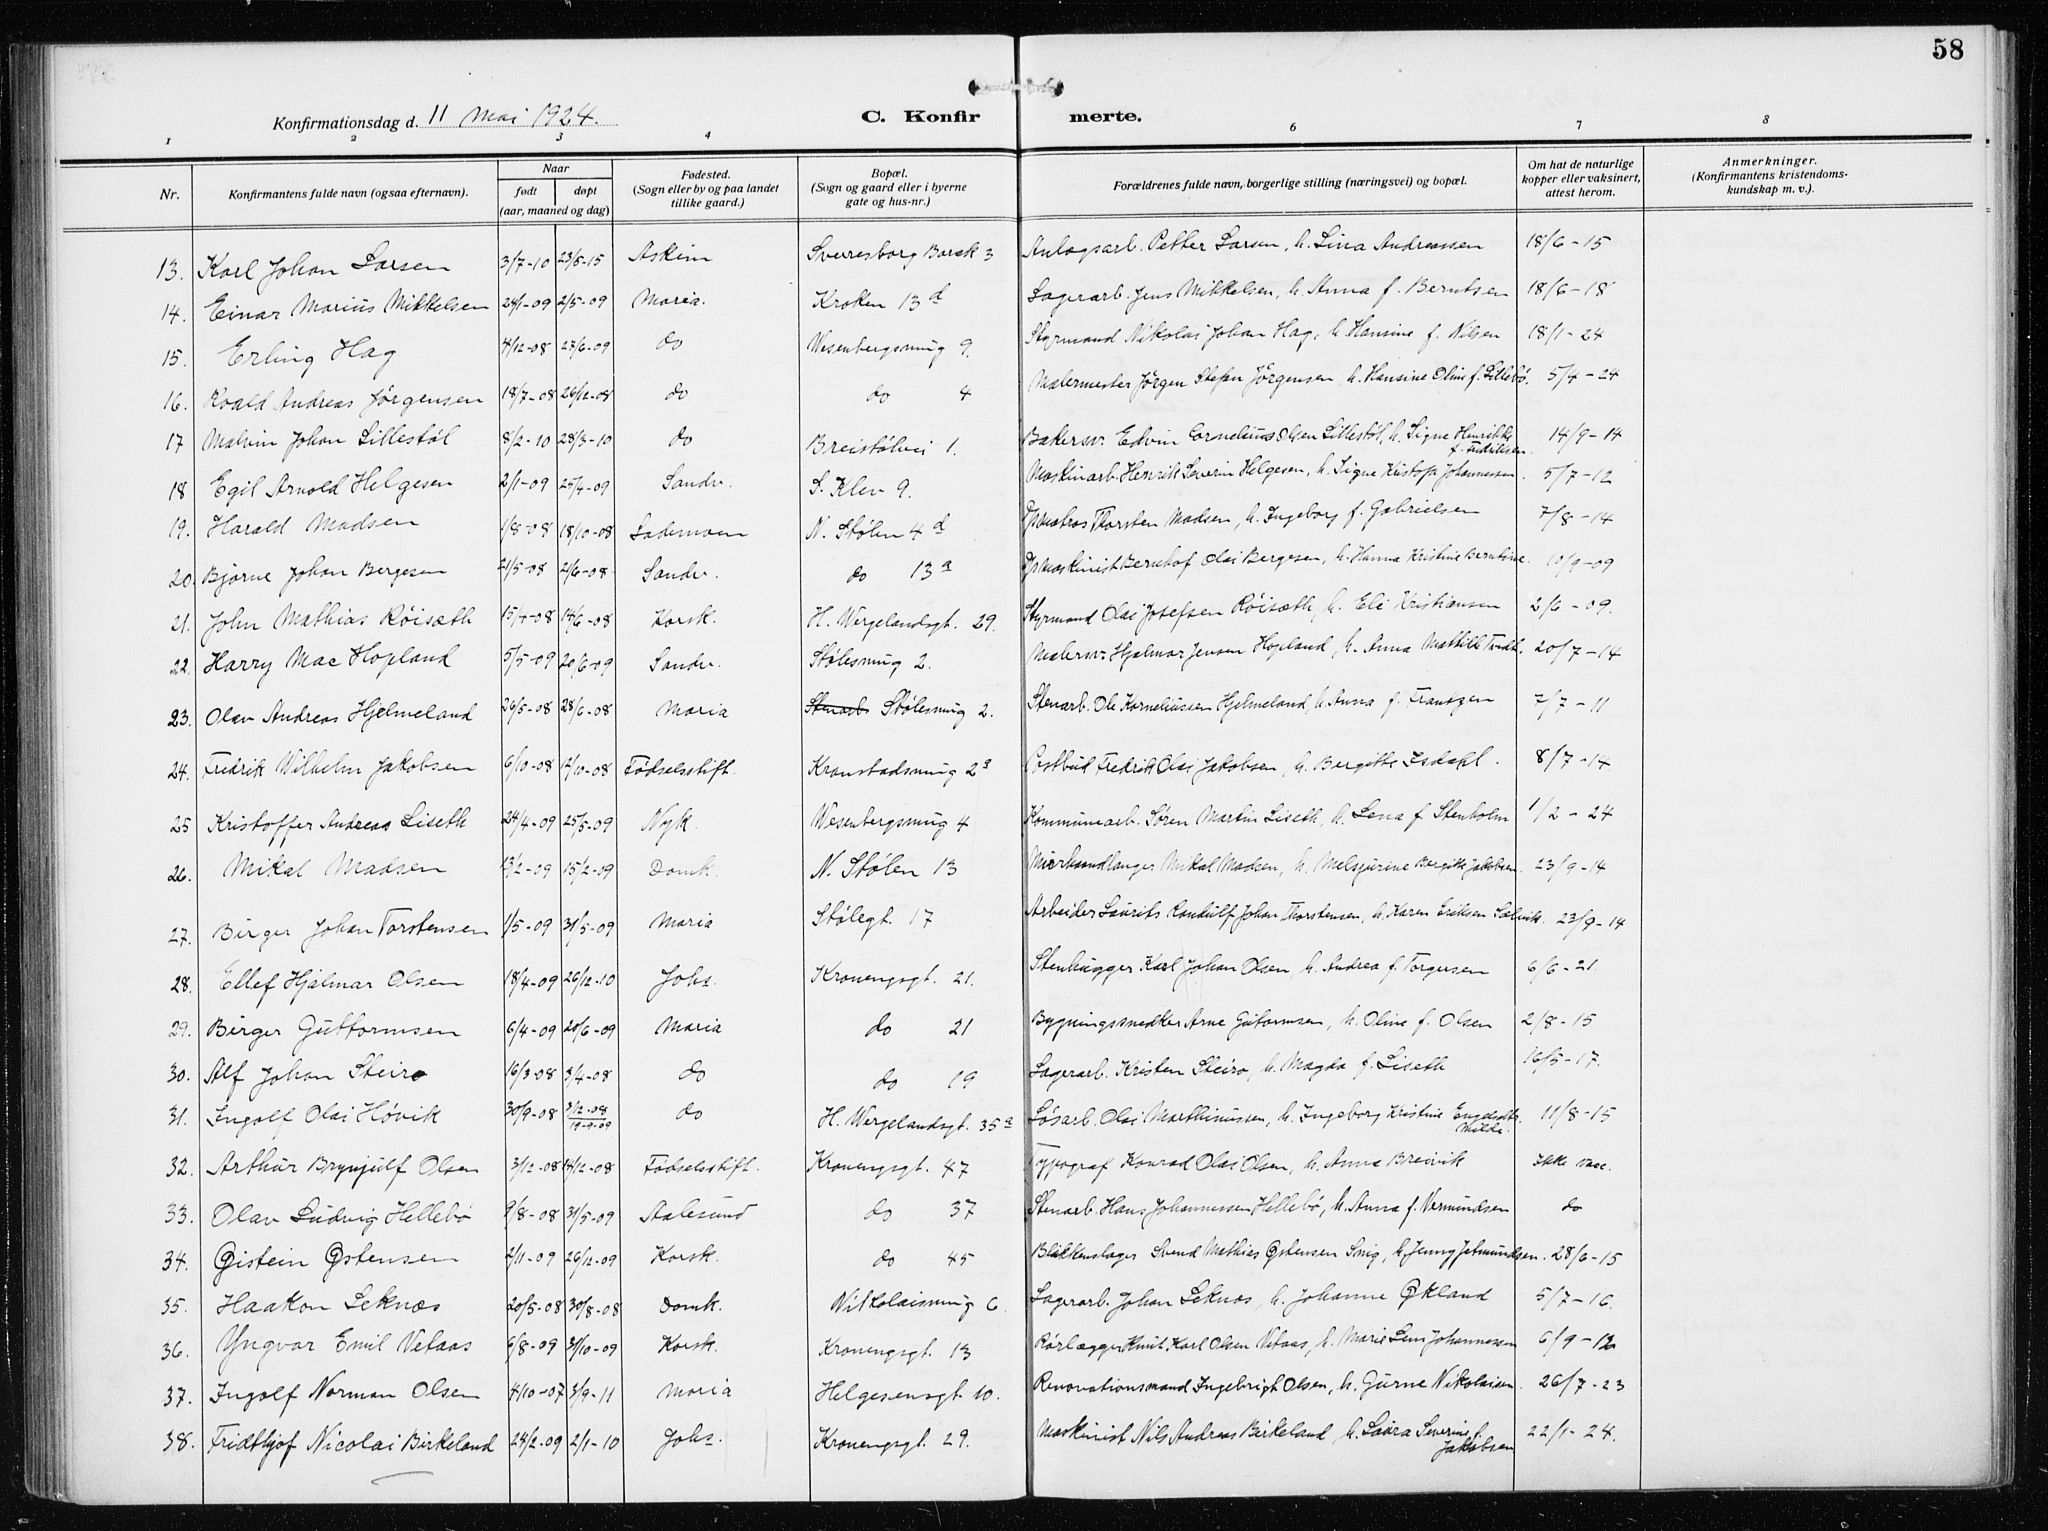 58
Konfirmationsdag d. 11 Mai 1924. C. Konfir merte.
1 2 3 4 6 7 8
Nr. Konfirmantens fulde navn (ogsaa efternavn). Naar født døpt (aar, maaned og dag) Fødested. (Sogn eller by og paa landet tillike gaard.) Bopæl. (Sogn og gaard eller i byerne gate og hus-nr.) Forældrenes fulde navn, borgerlige stilling (næringsvei) og bopæl. Om hat de naturlige kopper eller vaksinert, attest herom. Anmerkninger. (Konfirmantens kristendoms-kundskap m. v.).
13. Karl Johan Larsen 3/7-10 23/5-15 Askim Sverresborg Barak 3 Anlægsarb. Petter Larsen, h. Lina Andreassen 18/6-15
14. Einar Marius Mikkelsen 24/1-09 2/5-09 Maria. Kroken 13 d Lagerarb. Jens Mikkelsen, h. Anna f. Berntsen 18/6-18
15. Erling Hag 4/12-08 27/6-09 do Wesenbergsmug 9. Styrmand Nikolai Johan Hag, h. Hansine f. Nilsen 18/1-24
16. Roald Andreas Jørgensen 18/7-08 26/12-08 do do 4 Malermester Jørgen Stefan Jørgensen, h. Hansine Oline f. Lillebø. 5/4-24
17 Malvin Johan Lillestøl 8/2-10 28/3-10 do Breistølvei 1. Bakersv. Edvin Cornelius Olsen Lillestøl, h. Signe Henrikke f. Fredriksen 14/9-14
18 Egil Arnold Helgesen 2/1-09 25/4-09 Sandv. S. Klev 9. Maskinarb. Henrik Severin Helgesen, h. Signe Kristofa Johannessen. 5/7-12
19. Harald Madsen 1/8-08 18/10-08 Lademoen N. Stølen 4 d Matros Thorsten Madsen, h. Ingeborg f. Gabrielsen 7/8-14
20. Bjarne Johan Bergesen 21/5-08 21/6-08 Sandv. do 13 a Maskinist Bernhof Olai Bergesen, h. Hanna Kristine Berntsine. 10/9-09
21. John Mathias Røisæth 15/4-08 14/6-08 Korsk. H. Wergelandsgt. 29. Styrmand Olai Josefsen Røisæth, h. Eli Kristiansen 2/6-09.
22. Harry Mac Hopland 5/5-09 20/6-09 Sandv. Stølesmug 2. Malersv. Hjalmar Jensen Hopland, h. Anna Mathilde Tvedt. 20/7-14
23. Olav Andreas Hjelmeland 26/5-08 28/6-08 Maria Stenarb. Stølesmug 2. Stenarb. Ole Korneliussen Hjelmeland, h. Anna f. Frantzen 7/7-11
24. Fredrik Wilhelm Jakobsen 6/10-08 12/10-08 Fødselsstift. Kronstadsmug 2 a Postbud Fredrik Olai Jakobsen, h. Bergitte Isdahl. 8/7-14
25 Kristoffer Andreas Liseth 24/4-09 25/5-09 Nyk. Wesenbergsmug 4 Kommunearb. Søren Martin Liseth, h. Lena f. Stenholm 1/2-24
26. Mikal Madsen 13/2-09 15/2-09 Domk. N. Stølen 13 Murhaandlanger Mikal Madsen, h. Bergitte Jakobsen. 23/9-14
27. Birger Johan Torstensen 1/5-09 31/5-09 Maria Stølegt. 17 Arbeider Laurits Randulf Johan Thorstensen, h. Karen Eriksen Sælvik. 23/9-14
28. Ellef Hjalmar Olsen 18/4-09 26/12-10 Johs. Kronengsgt. 21. Stenhugger Karl Johan Olsen, h. Andrea f. Torgersen 6/6-21.
29. Birger Guttormsen 6/4-09 20/6-09 Maria do 21 Bygningssnedker Arne Guttormsen, h. Oline f. Olsen 2/8-15
30. Alf Johan Steiro 16/3-08 3/4-08 do do 19 Lagerarb. Kristen Steiro, h. Magda f. Liseth 16/5-17.
31. Ingolf Olai Høvik 30/9-08 3/12-08 19-9-09 do H. Wergelandsgt. 35 a Løsarb. Olai Marthinussen, h. Ingeborg Kristine Engelsdtr. Milde. 11/8-15
32. Arthur Brynjulf Olsen 3/12-08 14/12-08 Fødselsstift. Kronengsgt. 47 Typograf Konrad Olai Olsen, h. Anna Breivik Ikke vacc.
33. Olav Ludvig Hellebø 9/8-08 31/5-09 Aalesund do 37 Stenarb. Hans Johannessen Hellebø, h. Anna f. Vermundsen do
34. Øistein Østensen 2/11-09 26/12-09 Korsk. do 45 Blikkenslager Svend Mathias Østensen Snig, h. Jenny Jetmundsen. 28/6-15
35. Haakon Leknæs 20/5-08 30/8-08 Domk. Nikolaismug 6. Lagerarb. Johan Leknæs, h. Johanne Økland 5/7-16.
36. Yngvar Emil Vetaas 6/8-09 31/10-09 Korsk. Kronengsgt. 13 Rørlægger Knut Karl Olsen Vetaas, h. Marie Johannessen 6/9-12
37. Ingolf Norman Olsen 4/10-07 3/9-11 Maria Helgesensgt 10. Renovationsmand Ingebrigt Olsen, h. Gurine Nikolaisen. 26/7-23
38. Fridthjof Nicolai Birkeland 24/2-09 2/1-10 Johs. Kronengsgt. 29. Maskinist Nils Andreas Birkeland, h. Laura Severine f. Jakobsen 22/1-24.